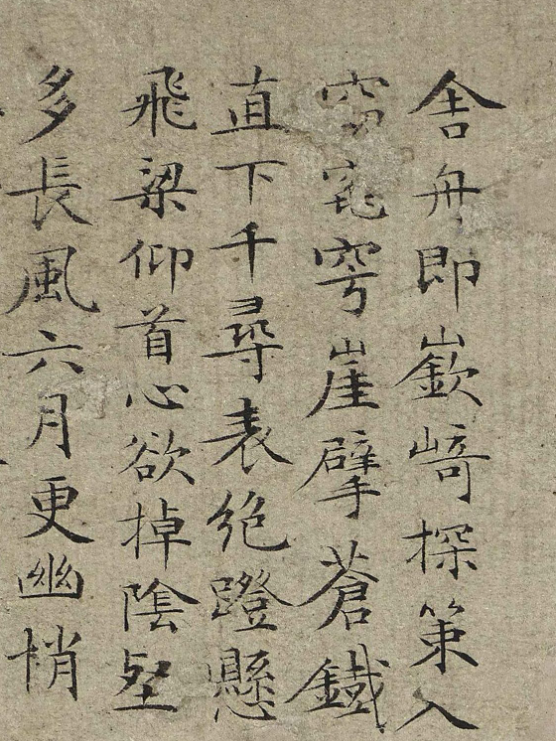 舍舟即嶔崎探策入
窈窕穹崖擘蒼鐵
直下千尋表絶蹬懸
飛梁仰首心欲掉陰壑
多長風六月更幽悄